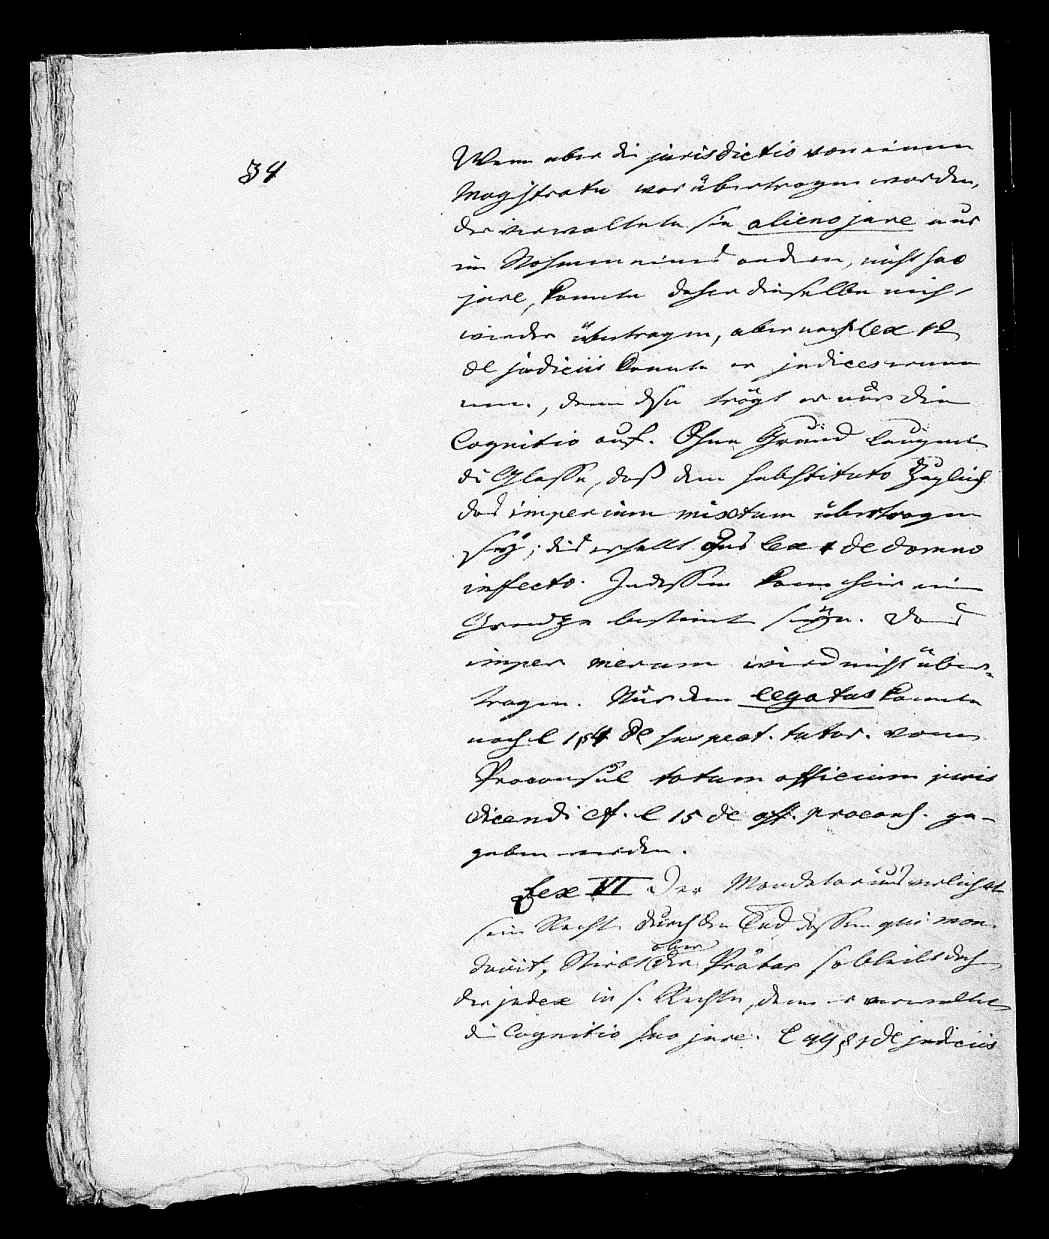 34
Wenn aber die jurisdictio von einem
Magistrate war übertragen worden,
der verwaltete sie alieno jure aus
im Nahmen eines andern, nicht suo
jure, konnte daher dieselbe nicht
wieder übertragen, aber nach lex 12
de judiciis konnte er judices ernen
nen, denn dem trägt er nur die
Cognitio auf. Ohne Grund leugnet
die Glosse, daß dem substituto zugleich
das imperium mixtum übertragen
sey; dies erhellt aus lex 4 de damno
infecto. Indessen kann hier eine
Grenze bestimt seyn. Das
imper merum wird nicht über-
tragen. Nur dem legatus konnte
nach l 1 § 4 de suspect. tutor. vom
Proconsul totum officium juris
dicendi cf. l 15 de off. procons. ge-
geben werden.
Lex VI Der Mandatarius verliehrt
sein Recht durch den Tod dessen qui man
davit, Stirbt aber der Prätor so bleibt doch
der judex in s. Rechte, denn er verwaltet
die Cognitio suo jure. l 49 § 1 de judiciis